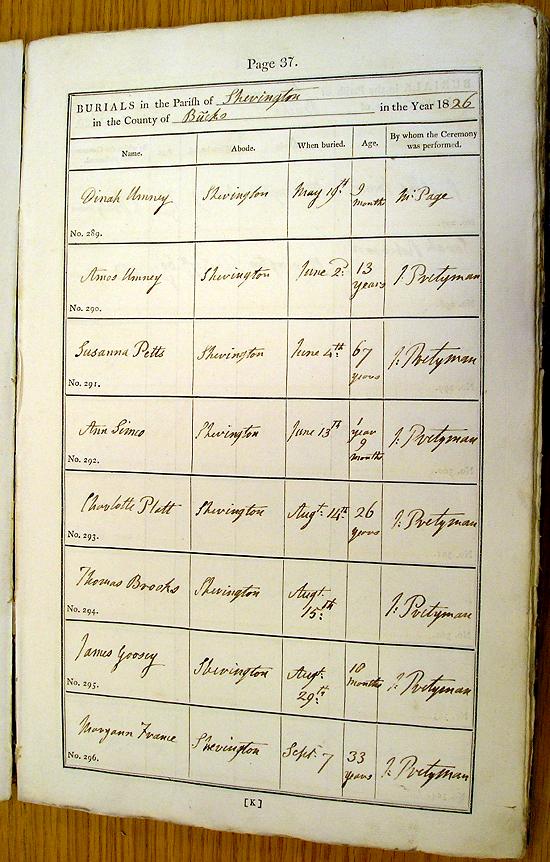 Page 37.
BURIALS in the Parish of Shevington
in the County of Bucks in the Year 1826
Name. Abode. When buried. Age. By whom the Ceremony was performed.
Dinah Umney Shevington May 19th 9 months W: Page
No. 289.
Amos Umney Shevington June 2d: 13 years J: Pretyman
No. 290.
Susanna Petts Shevington June 4th: 67 years J: Pretyman
No. 291.
Ann Simco Shevington June 13th 1 year 9 months J: Pretyman
No. 292.
Charlotte Platt Shevington Augt: 14th: 26 years J: Pretyman
No. 293.
Thomas Brooks Shevington Augt: 15:th J: Pretyman
No. 294.
James Goosey Shevington Augt: 29:th months J: Pretyman
No. 295.
Maryann France Shevington Sept: 7 33 years J: Pretyman
No. 296.
[K]